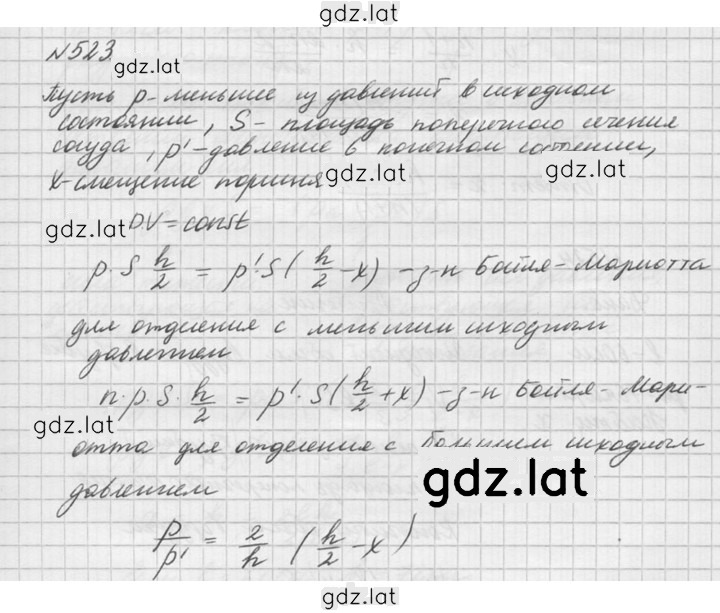 gdz.lat
№523
gdz.lat
Пусть p-меньшее из давлений в исходном
состоянии, S- площадь поперечного сечения
сосуда, p'-давление в конечном состоянии,
gdz.lat
x-смещение поршня
gdz.lat
p.V = const
p·S h/2 = p'·S(h/2-x) -з-н Бойля-Мариотта
для отделения с меньшим исходным
давлением
n·p·S·h/2 = p'·S(h/2+x) -з-н Бойля-Мари-
gdz.lat
отта для отделения с большим исходным
gdz.lat
давлением
p/p' = 2/h (h/2-x)
gdz.lat